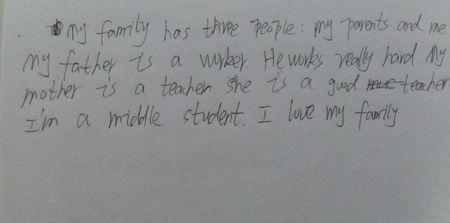 My family has three people: my parents and me
my father is a worker. He works really hard My
mother is a teacher she is a good teacher
I'm a middle student. I love my family